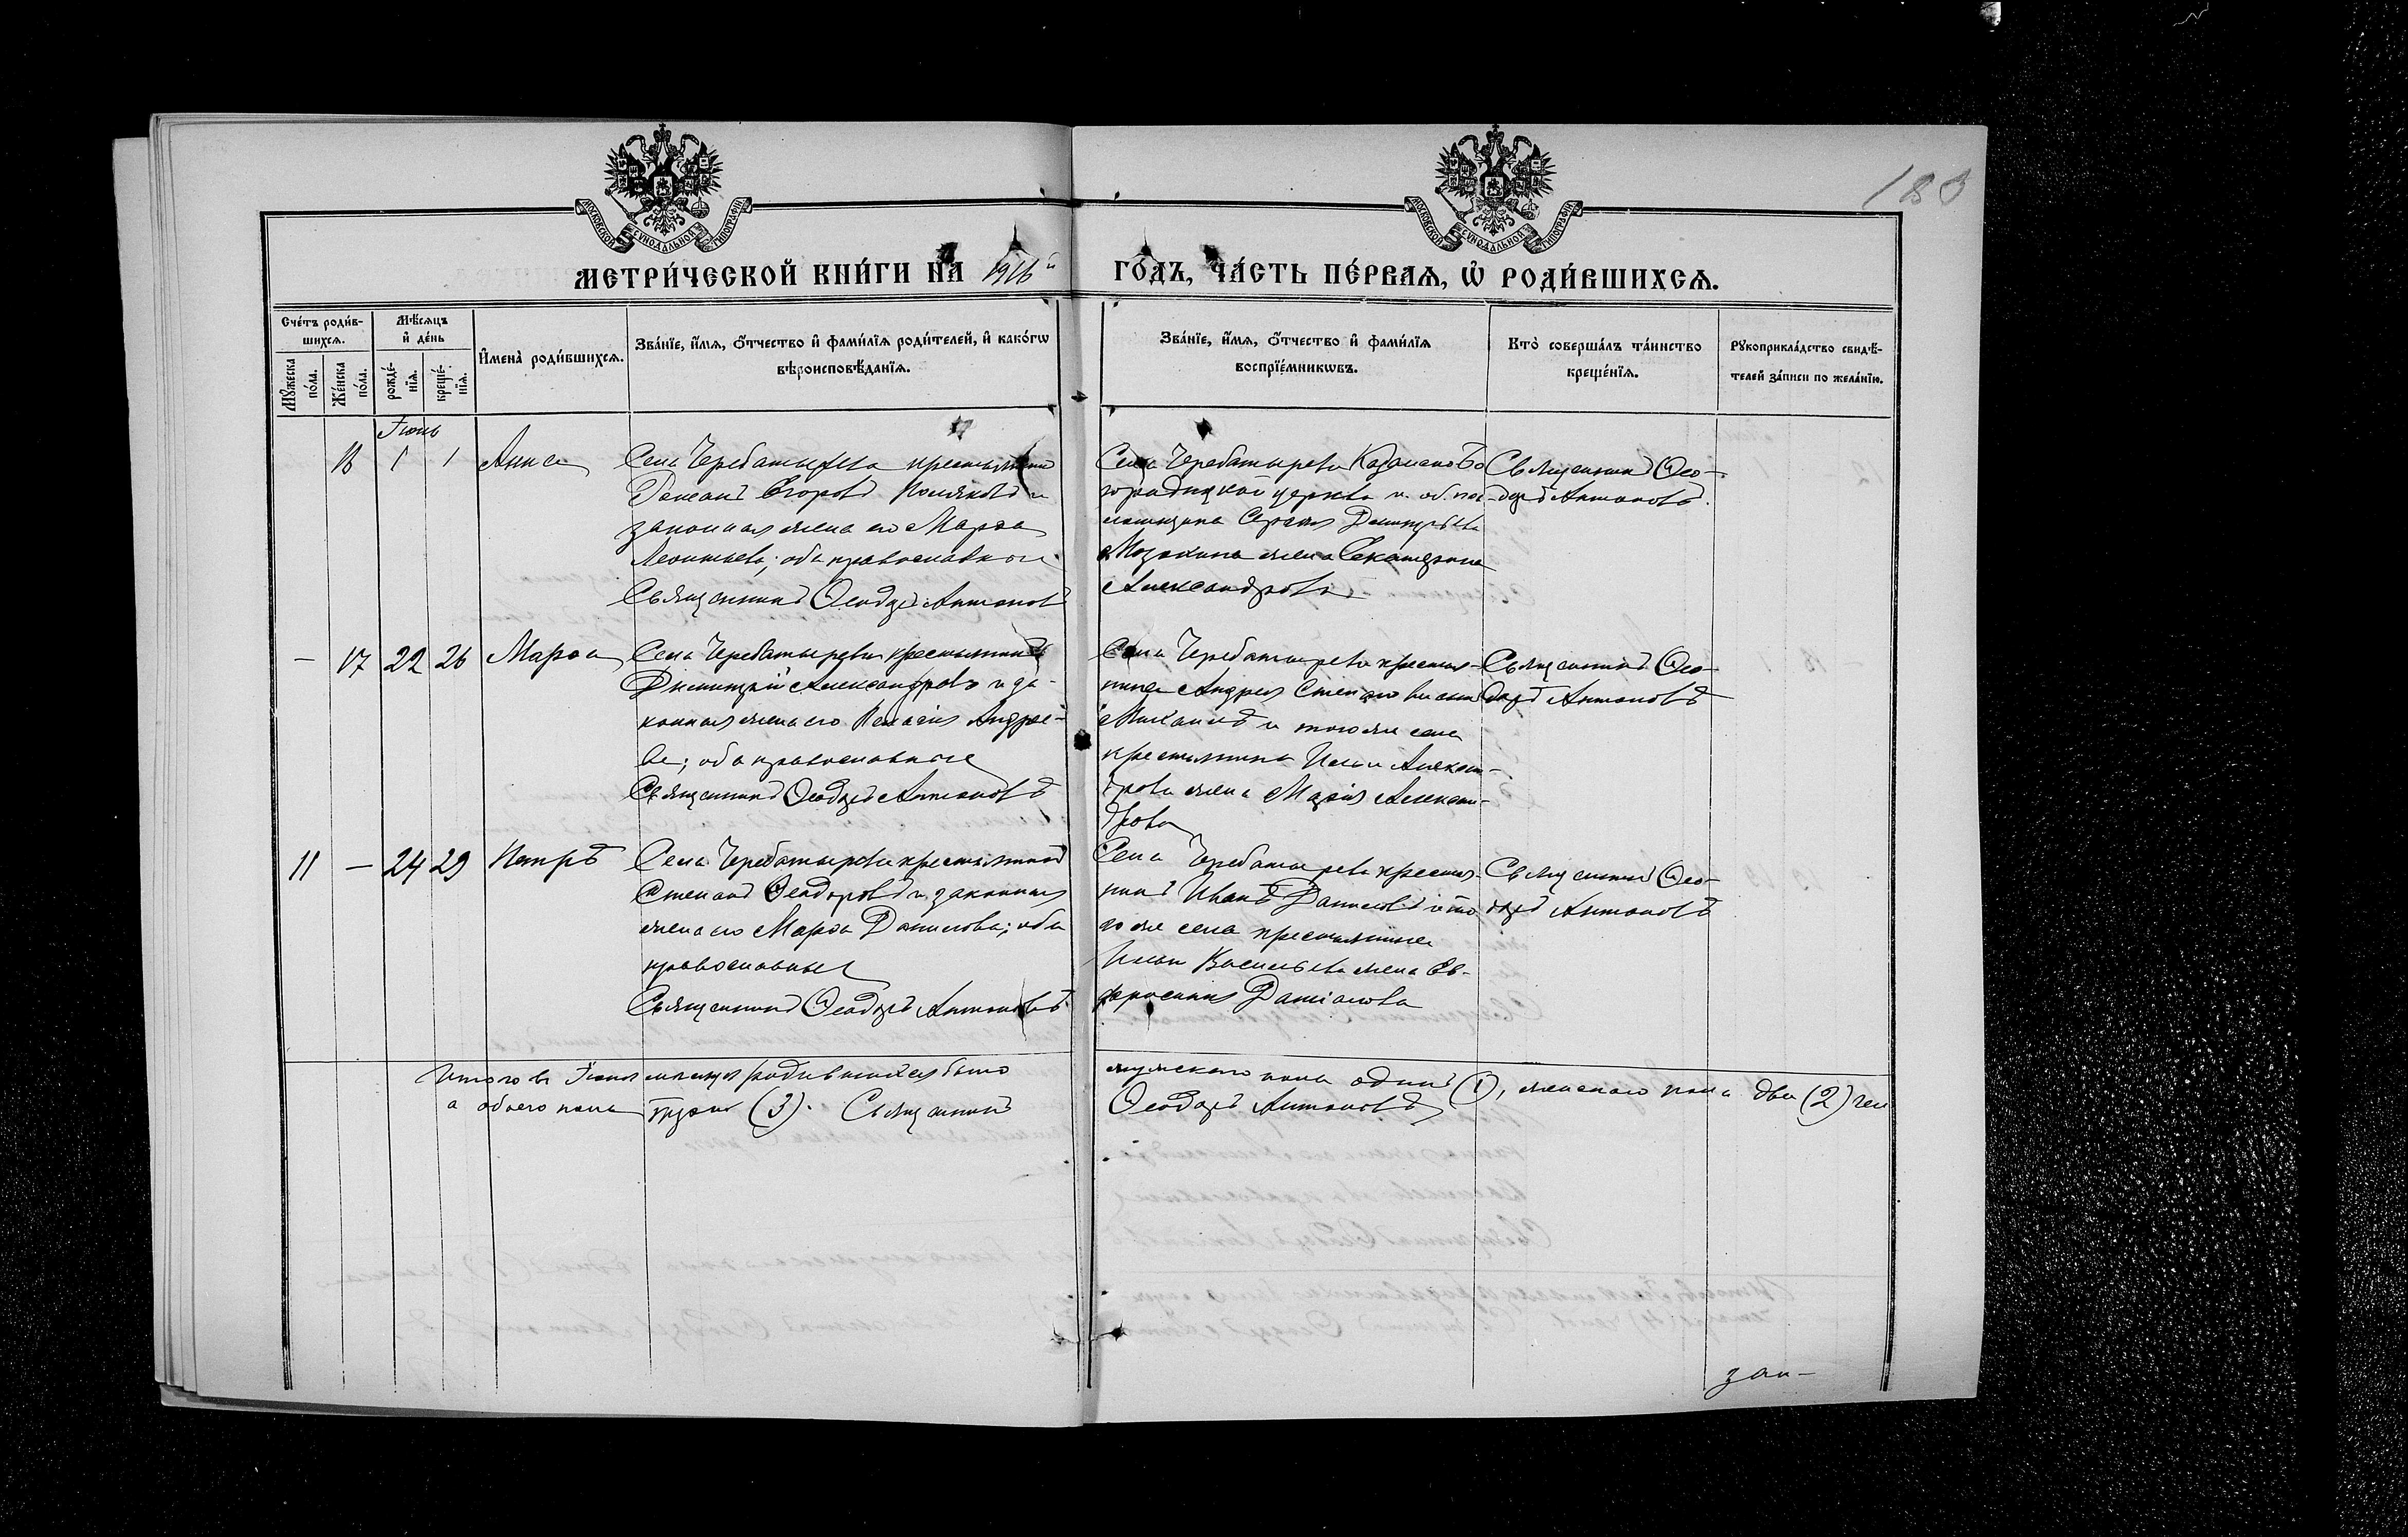 183
МОСКОВСКОЙ СѴНОДАЛЬНОЙ ТИПОГРАФІИ
МОСКОВСКОЙ СѴНОДАЛЬНОЙ ТИПОГРАФІИ
МЕТРИ́ЧЕСКОЙ КНИ́ГИ НА 1916й ГО́ДЪ, ЧА́СТЬ ПЕ́РВАѦ, Ѡ҆ РОДИ́ВШИХСѦ.
Сче́тъ роди́в-
шихсѧ.
Мꙋ́жеска по́ла.
Же́нска по́ла.
Мѣ́сѧцъ
и҆ де́нь
рожде́-
нїѧ.
креще́-
нїѧ.
И҆мена̀ роди́вшихсѧ.
Зва́нїе, и҆́мѧ, ѻ҆́тчество и҆ фами́лїѧ роди́телей, и҆ како́гѡ
вѣроисповѣ́данїѧ.
Зва́нїе, и҆́мѧ, ѻ҆́тчество и҆ фами́лїѧ
воспрїе́мникѡвъ.
Кто̀ соверша́лъ та́инство
креще́нїѧ.
Рꙋкоприкла́дство свидѣ́-
телей за́писи по жела́нїю.
Іюнь
16 1 1 Анна
Села Черебатырева крестьянинъ
Егоровъ Поляковъ и
законная жена его Марѳа
Леонтьева; оба православные
Священникъ Ѳеодоръ Антоновъ
Села Черебатырева Казанско-Бо
городицкой церкви
Сергія Димитріева
жена Екатерина
Александрова
Священникъ Ѳео-
доръ Антоновъ.
— 17 22 26 Марѳа
Села Черебатырева крестьянинъ
Димитрій Александровъ и за-
конная жена его Пелагія Андрее-
ва; оба православные
Священникъ Ѳеодоръ Антоновъ
Села Черебатырева крестья-
нина Андрея Степанова сынъ
Михаилъ и того же села
крестьянина Ильи Алексан-
дрова жена Марія Алексан-
дрова
Священникъ Ѳео-
доръ Антоновъ
11 — 24 29 Петръ
Села Черебатырева крестьянинъ
Степанъ Ѳеодоровъ и законная
жена его Марѳа Данилова; оба
православные
Священникъ Ѳеодоръ Антоновъ
Села Черебатырева крестья-
нинъ Иванъ Даниловъ и то
го же села крестьянина
Ильи Васильева жена Ев-
фросинія Данилова
Священникъ Ѳео-
доръ Антоновъ
Итого въ Іюнѣ месяцѣ родившихся было мужского пола одинъ (1), женскаго пола два (2)
а обоего пола трое (3). Священникъ Ѳеодоръ Антоновъ